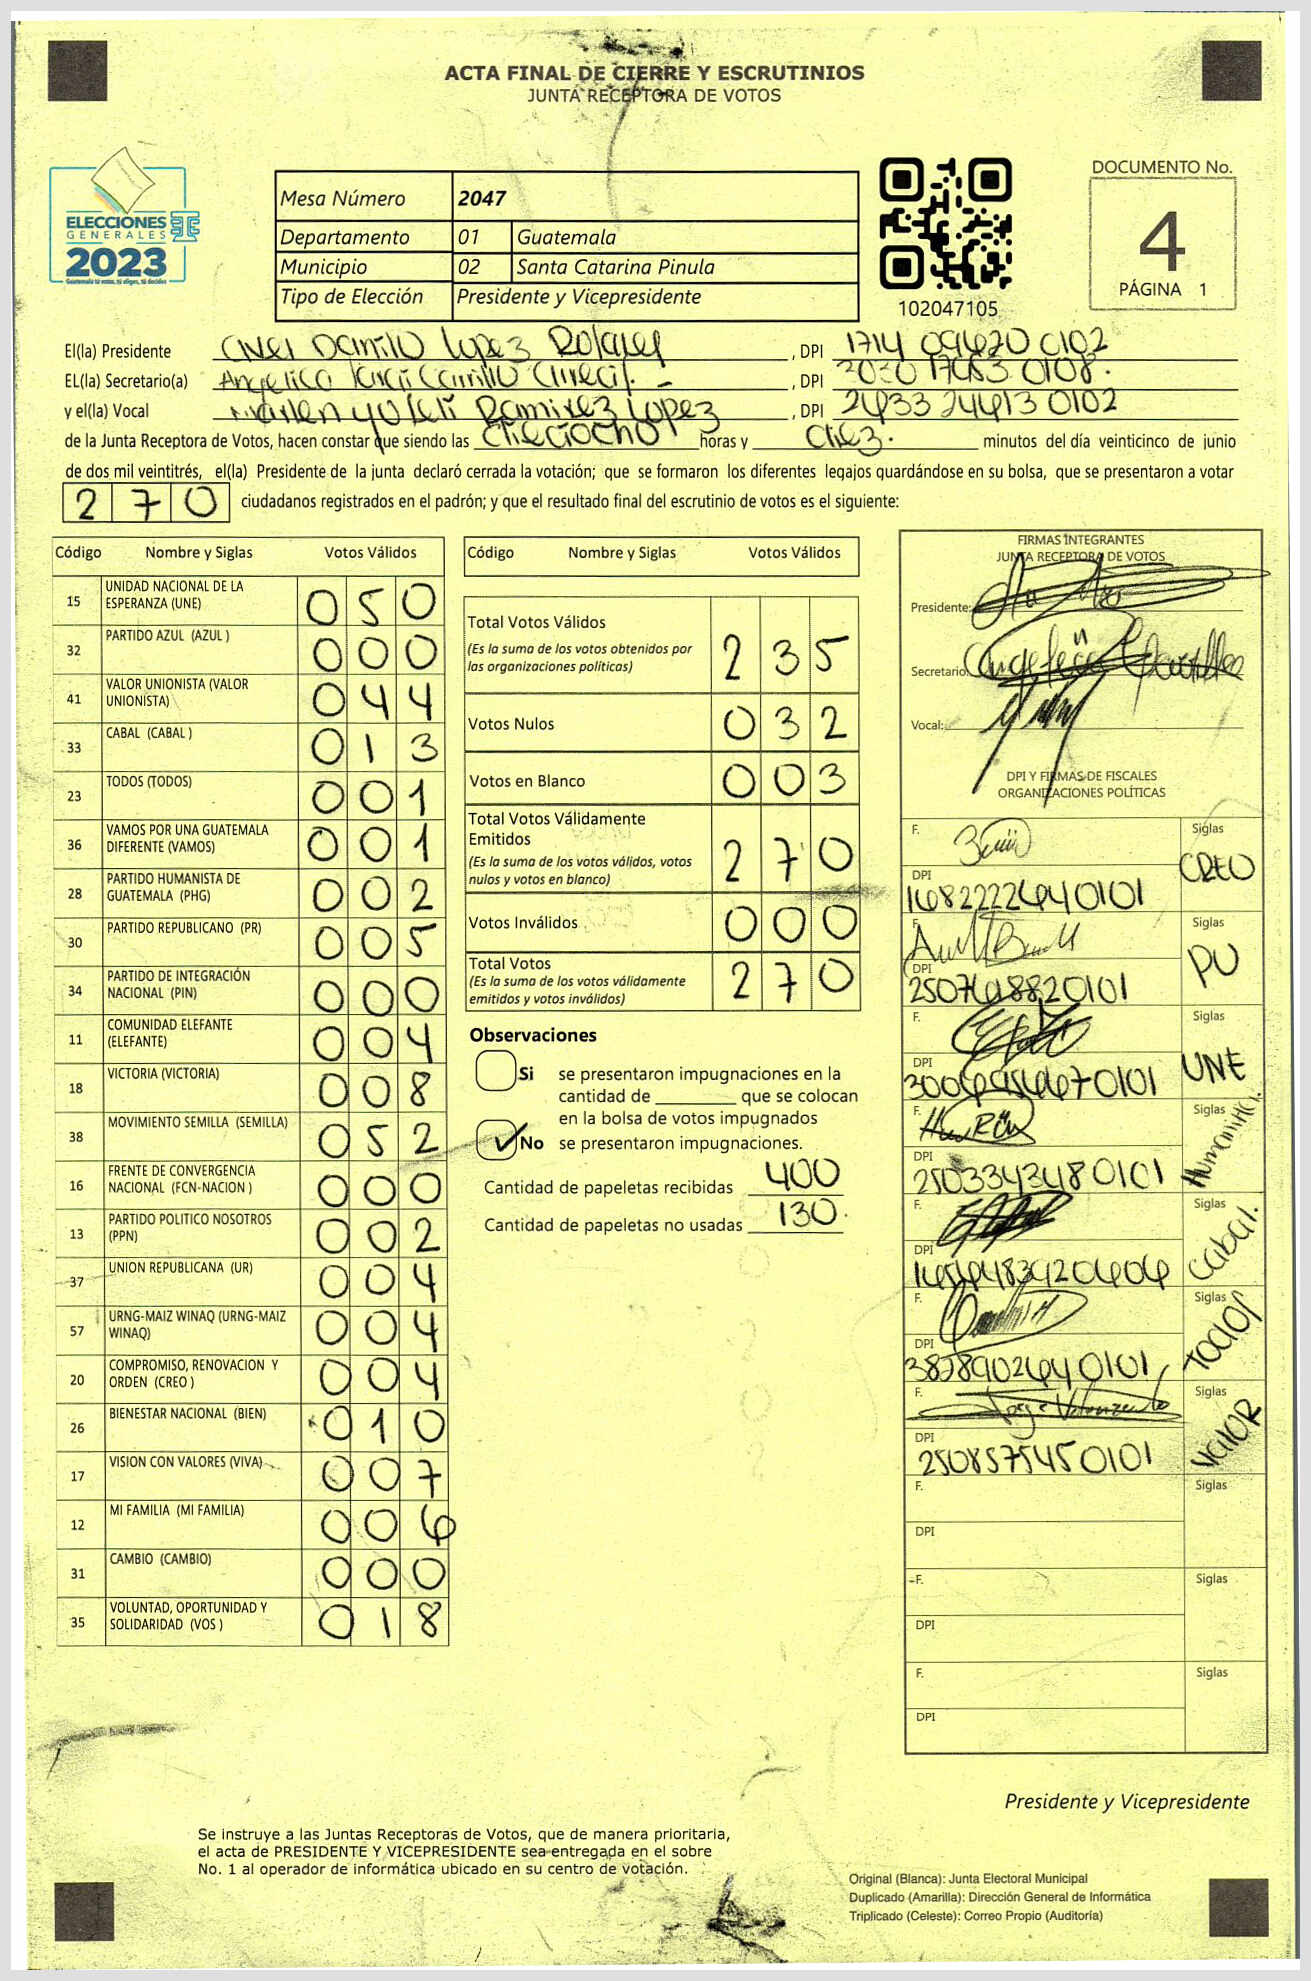 ACTA FINAL DE CIERRE Y ESCRUTINIOS
JUNTA RECEPTORA DE VOTOS
ELECCIONES
GENERALES
2023
Guatemala tú votas, tú eliges, tú decides
Mesa Número 2047
Departamento 01 Guatemala
Municipio 02 Santa Catarina Pinula
Tipo de Elección Presidente y Vicepresidente
102047105
DOCUMENTO No.
4
PÁGINA 1
El(la) Presidente Danilo Lopez , DPI 1714 09470 0102
EL(la) Secretario(a) Angelica Carrillo , DPI
y el(la) Vocal Ramirez Lopez , DPI 2433 24413 0102
de la Junta Receptora de Votos, hacen constar que siendo las dieciocho horas y diez. minutos del día veinticinco de junio
de dos mil veintitrés, el(la) Presidente de la junta declaró cerrada la votación; que se formaron los diferentes legajos quardándose en su bolsa, que se presentaron a votar
270 ciudadanos registrados en el padrón; y que el resultado final del escrutinio de votos es el siguiente:
Código Nombre y Siglas Votos Válidos
15 UNIDAD NACIONAL DE LA ESPERANZA (UNE) 050
32 PARTIDO AZUL (AZUL ) 000
41 VALOR UNIONISTA (VALOR UNIONISTA) 044
33 CABAL (CABAL ) 013
23 TODOS (TODOS) 001
36 VAMOS POR UNA GUATEMALA DIFERENTE (VAMOS) 001
28 PARTIDO HUMANISTA DE GUATEMALA (PHG) 002
30 PARTIDO REPUBLICANO (PR) 005
34 PARTIDO DE INTEGRACIÓN NACIONAL (PIN) 000
11 COMUNIDAD ELEFANTE (ELEFANTE) 004
18 VICTORIA (VICTORIA) 008
38 MOVIMIENTO SEMILLA (SEMILLA) 052
16 FRENTE DE CONVERGENCIA NACIONAL (FCN-NACION ) 000
13 PARTIDO POLITICO NOSOTROS (PPN) 002
37 UNION REPUBLICANA (UR) 004
57 URNG-MAIZ WINAQ (URNG-MAIZ WINAQ) 004
20 COMPROMISO, RENOVACION Y ORDEN (CREO ) 004
26 BIENESTAR NACIONAL (BIEN) 010
17 VISION CON VALORES (VIVA) 007
12 MI FAMILIA (MI FAMILIA) 006
31 CAMBIO (CAMBIO) 000
35 VOLUNTAD, OPORTUNIDAD Y SOLIDARIDAD (VOS ) 018
Código Nombre y Siglas Votos Válidos
Total Votos Válidos 235
(Es la suma de los votos obtenidos por
las organizaciones políticas)
Votos Nulos 032
Votos en Blanco 003
Total Votos Válidamente
Emitidos 270
(Es la suma de los votos válidos, votos
nulos y votos en blanco)
Votos Inválidos 000
Total Votos 270
(Es la suma de los votos válidamente
emitidos y votos inválidos)
Observaciones
Si se presentaron impugnaciones en la
cantidad de ________ que se colocan
en la bolsa de votos impugnados
✓ No se presentaron impugnaciones.
Cantidad de papeletas recibidas 400
Cantidad de papeletas no usadas 130.
FIRMAS INTEGRANTES
JUNTA RECEPTORA DE VOTOS
Presidente:
Secretario:
Vocal:
DPI Y FIRMAS DE FISCALES
ORGANIZACIONES POLÍTICAS
F. Siglas CREO
DPI 1682222640101
F. Siglas PU
DPI 2507608820101
F. Siglas UNE
DPI
F. Siglas Humanista.
DPI 2503343480101
F. Siglas Cabal.
DPI
F. Siglas TODOS
DPI 3878902640101
F. Siglas VALOR
DPI 2508575450101
F. Siglas
DPI
F. Siglas
DPI
F. Siglas
DPI
Presidente y Vicepresidente
Se instruye a las Juntas Receptoras de Votos, que de manera prioritaria,
el acta de PRESIDENTE Y VICEPRESIDENTE sea entregada en el sobre
No. 1 al operador de informática ubicado en su centro de votación.
Original (Blanca): Junta Electoral Municipal
Duplicado (Amarilla): Dirección General de Informática
Triplicado (Celeste): Correo Propio (Auditoría)